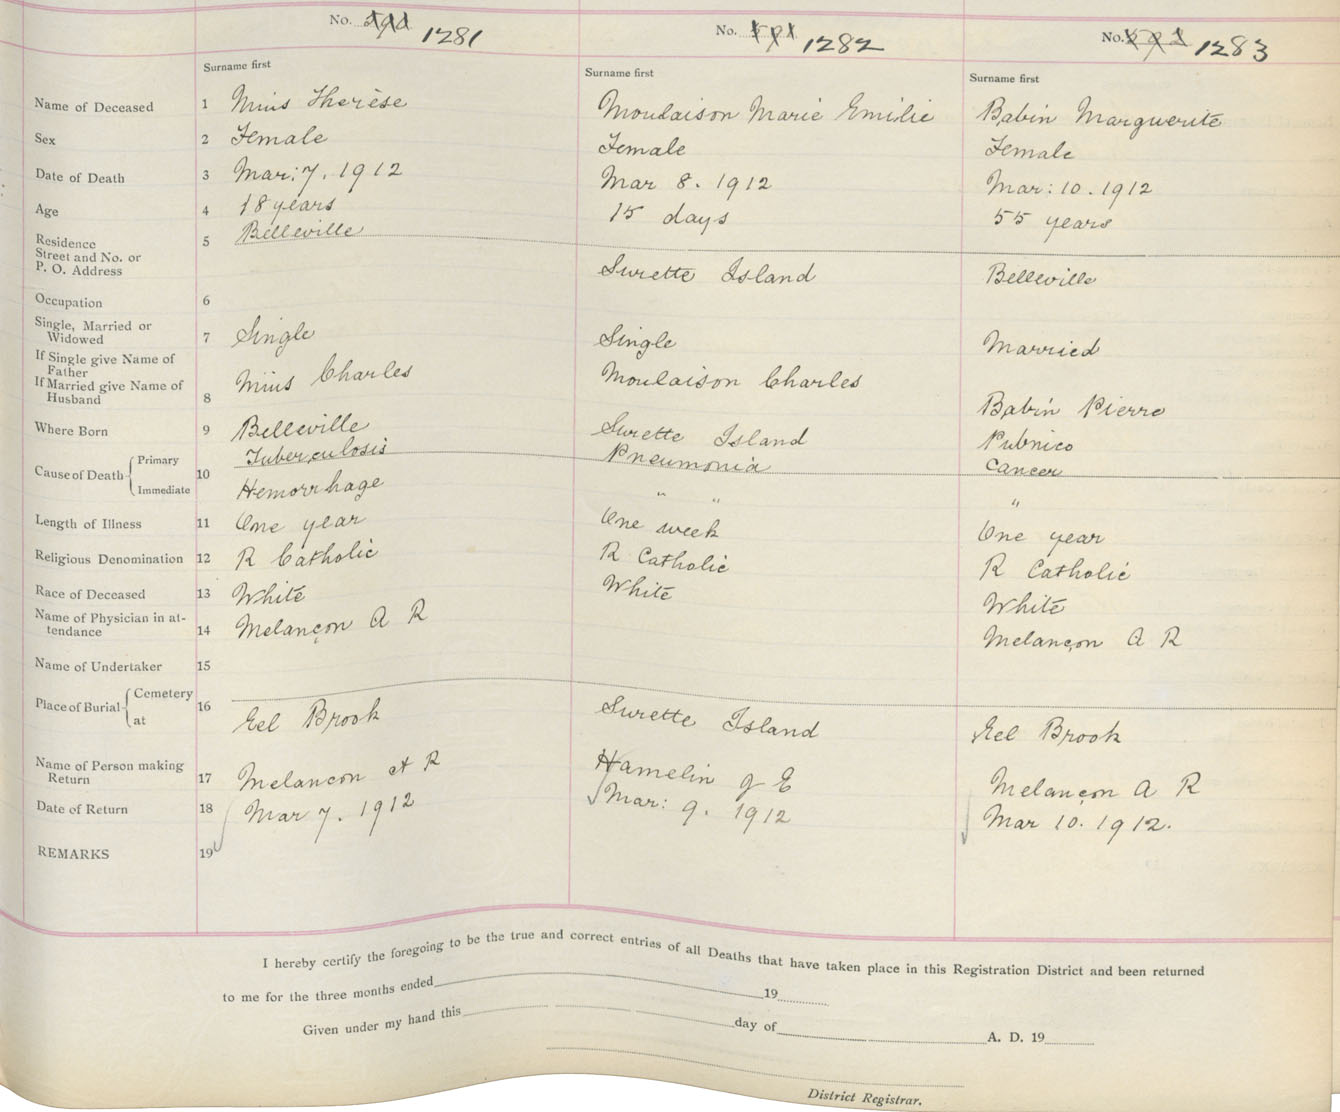 No. 1281 No. 1282 No. 1283
Surname first Surname first Surname first
Name of Deceased 1 Mius Therèse Moulaison Marie Emilie Babin Marguerite
Sex 2 Female Female Female
Date of Death 3 Mar: 7. 1912 Mar 8. 1912 Mar: 10. 1912
Age 4 18 years 15 days 55 years
Residence
Street and No. or
P. O. Address 5 Belleville Surette Island Belleville
Occupation 6
Single, Married or
Widowed 7 Single Single Married
If Single give Name of
Father
If Married give Name of
Husband 8 Mius Charles Moulaison Charles Babin Pierre
Where Born 9 Belleville Surette Island Pubnico
Cause of Death 10
Primary Tuberculosis Pneumonia Cancer
Immediate Hemorrhage " " "
Length of Illness 11 One year One week One year
Religious Denomination 12 R Catholic R Catholic R Catholic
Race of Deceased 13 White White White
Name of Physician in at-
tendance 14 Melançon A R Melançon A R
Name of Undertaker 15
Place of Burial Cemetery 16
at Eel Brook Surette Island Eel Brook
Name of Person making
Return 17 Melancon A R Hamelin J E Melançon A R
Date of Return 18 Mar 7. 1912 Mar: 9. 1912 Mar 10. 1912.
REMARKS 19
I hereby certify the foregoing to be the true and correct entries of all Deaths that have taken place in this Registration District and been returned
to me for the three months ended 19
Given under my hand this day of A. D. 19
District Registrar.